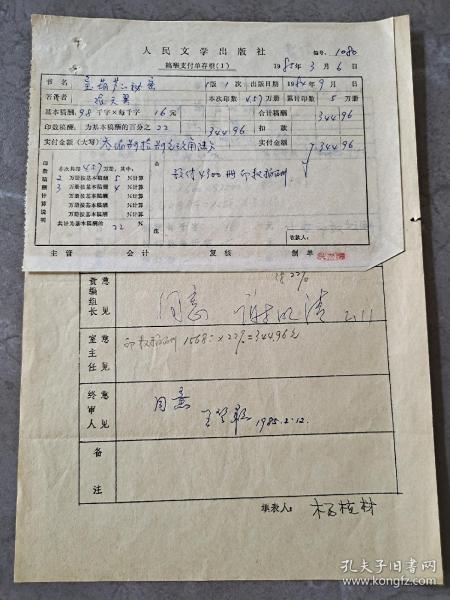 人民文学出版社
编号: 1080
稿酬支付单存根(1)
1985年3月6日
书名 宝葫芦的秘密 1版1次 出版日期 1984年9月
著译者 张天翼 本次印数 4.57万册 累计印数 5万册
基本稿酬: 98千字×每千字 16元 合计稿酬 344.96
印数稿酬: 为基本稿酬的百分之 22 344.96 扣款
实付金额(大写) 叁佰肆拾肆元玖角陆分 实付金额 344.96
印数稿酬计算说明
本次共印 4.57万册, 其中:
2万册按基本稿酬 5%计算
3万册按基本稿酬 4%计算
万册按基本稿酬 %计算
万册按基本稿酬 %计算
共计为基本稿酬的 22 %
备注
收款人:
主管 会计 复核 制单
责编组长意见
同意
2.11
室主任意见
印数稿酬 1568-×22%=344.96元
终审人意见
同意
1985.2.12.
备注
填表人: 杨植林
孔夫子旧书网
www.kongfz.com